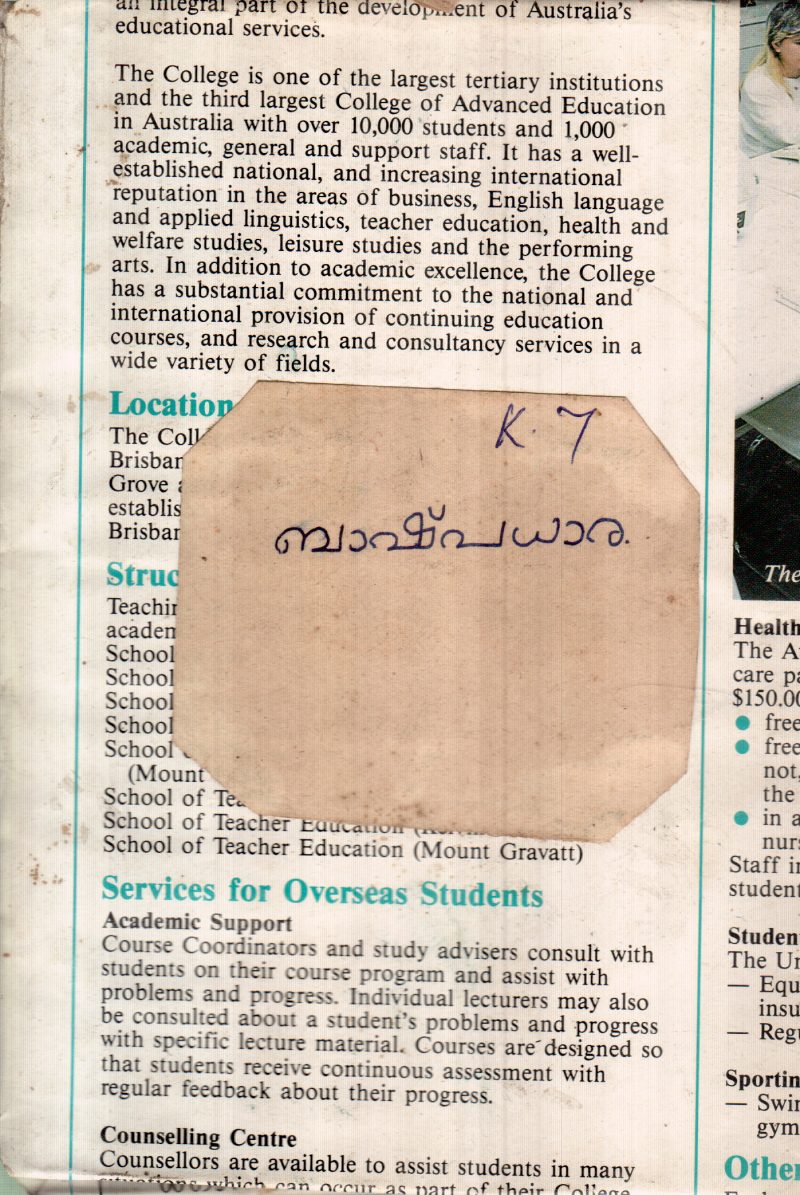 an integral part of the development of Australia's
educational services.
The College is one of the largest tertiary institutions
and the third largest College of Advanced Education
in Australia with over 10,000 students and 1,000
academic, general and support staff. It has a well-
established national, and increasing international
reputation in the areas of business, English language
and applied linguistics, teacher education, health and
welfare studies, leisure studies and the performing
arts. In addition to academic excellence, the College
has a substantial commitment to the national and
international provision of continuing education
courses, and research and consultancy services in a
wide variety of fields.
Location
The Coll
Brisban
Grove
establis
Brisban
K. 7
ബാഷ്പധാര.
Struc
Teachin
academ
School
School
School
School
School
(Mount
School of Tea
School of Teacher Education
School of Teacher Education (Mount Gravatt)
Services for Overseas Students
Academic Support
Course Coordinators and study advisers consult with
students on their course program and assist with
problems and progress. Individual lecturers may also
be consulted about a student's problems and progress
with specific lecture material. Courses are designed so
that students receive continuous assessment with
regular feedback about their progress.
Counselling Centre
Counsellors are available to assist students in many
situations which can occur as part of their College
The
Health
The A
care pa
$150.00
● free
● free
not,
the
● in a
nurs
Staff in
student
Studen
The Un
— Equ
insu
— Regu
Sportin
— Swin
gym
Other